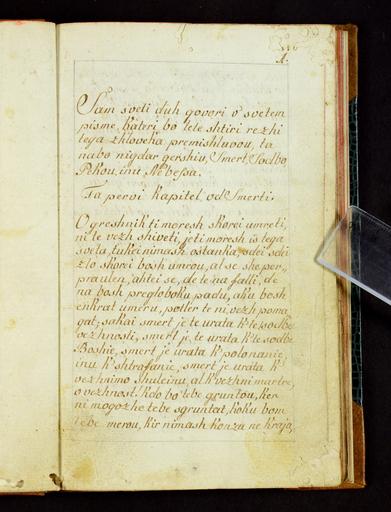 1.
Sam sveti duh govori v svetem
pisme, kateri bo lete shtiri rezhi
tega zhloveka premishluvov, ta
nabo nigdar gershiu, Smert, Sodbo
Pekou, inu Nebessa.
Ta pervi Kapitel od Smerti.
O greshnik ti moresh skorei umreti,
ni te vezh shiveti, je ti moresh is tega
sveta, tukei nimash ostanka, sdei sdei
zlo skorei bosh umrou, al se she per„
praulen, ahtei se, de te na falli, de
na bosh pregloboku padu, aku bosh
enkrat umeru, potler te ni vezh poma„
gat, sakai smert je te urata k' te sodbe
vezhnosti, smert je te urata k' te sodbe
Boshie, smert je urata k' polonanie,
inu k' shtrafanie, smert je urata k'
vezhnimo shuleinu, al k' vezhni martre,
o vezhnost! kdo bo tebe gruntou, ker
ni mogozhe tebe sgruntat, koku bom
tebe merou, kir nimash konza ne kraja,